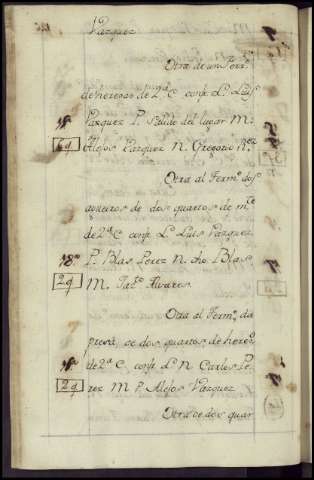 Vazquez
Otra de un Ferr.º
de heredad de 2.ª C. confr. L. Luis
Vazquez P. Salido del lugar M.
6q Alejos Vazquez N. Gregorio
Otra al Ferm.º dos
de dos quartos de
de 2.ª C. confr. L. Luis Vazquez
P. Blas Perez N. dho Blas
2q M. Alvares
Otra al Ferm.º da
presa, de dos quartos de hered.
de 2.ª C. confr. L. N. Carlos Pe
2q rez M. P. Alejos Vazquez
Otra de dos quar